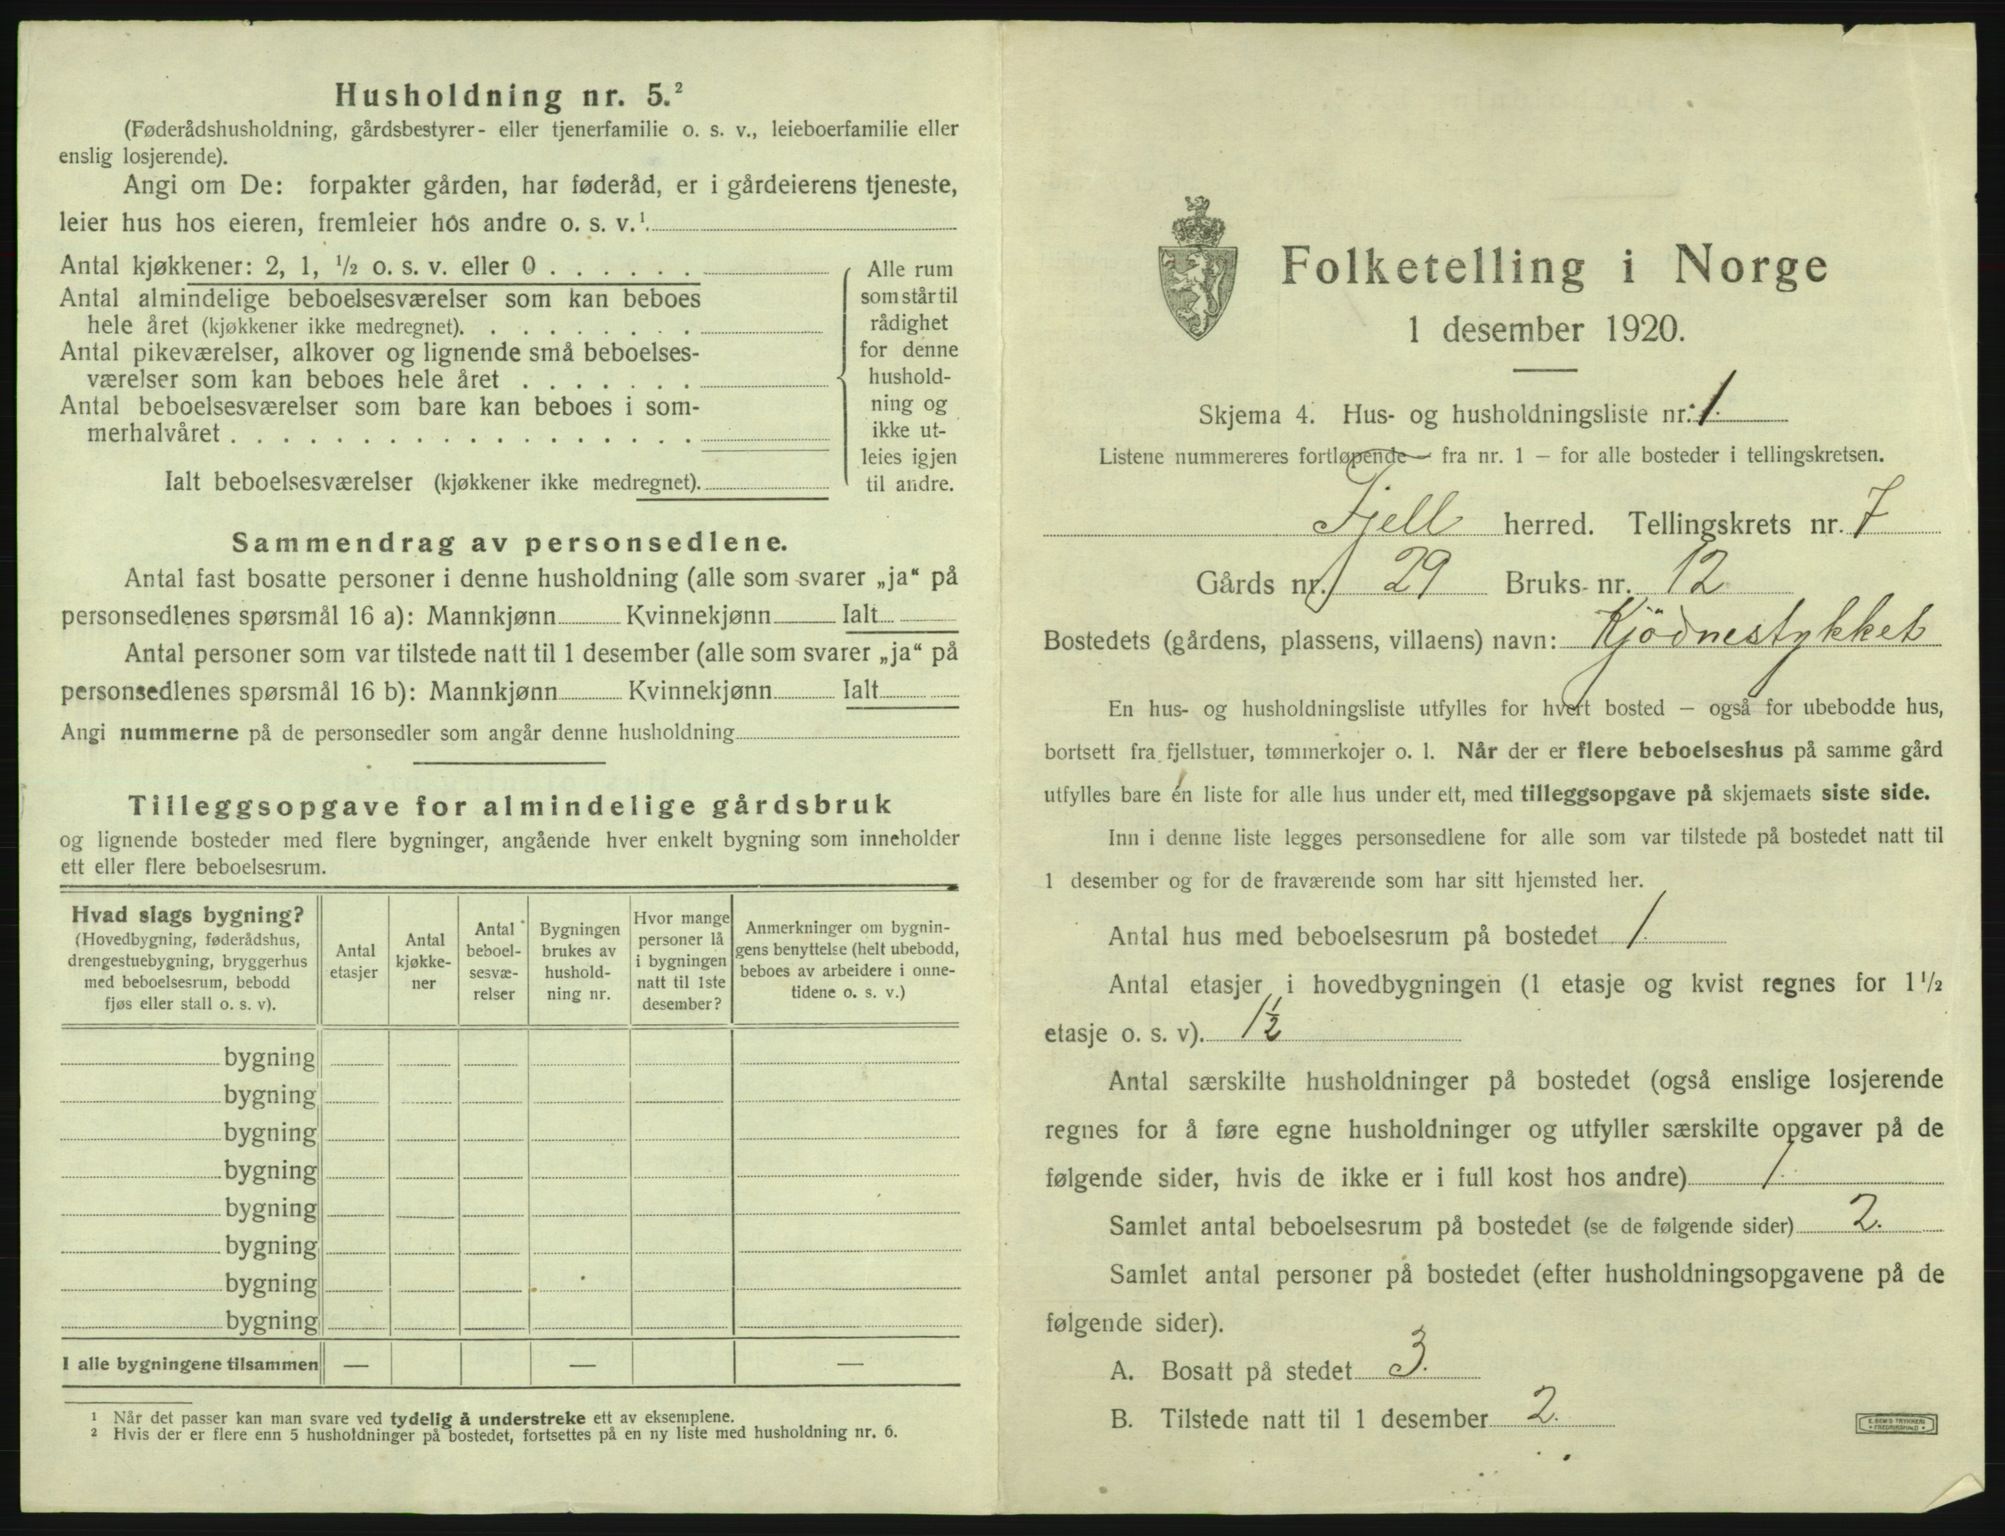 Husholdning nr. 5.²
(Føderådshusholdning, gårdsbestyrer- eller tjenerfamilie o. s. v., leieboerfamilie eller
enslig losjerende).
Angi om De: forpakter gården, har føderåd, er i gårdeierens tjeneste,
leier hus hos eieren, fremleier hos andre o. s. v.¹
Antal kjøkkener: 2, 1, ½ o. s. v. eller 0 . . . . . .
Antal almindelige beboelsesværelser som kan beboes
hele året (kjøkkener ikke medregnet). . . . . . . . .
Antal pikeværelser, alkover og lignende små beboelses-
værelser som kan beboes hele året . . . . . . .
Antal beboelsesværelser som bare kan beboes i som-
merhalvåret . . . . . . . . . . . . . . . . . .
Ialt beboelsesværelser (kjøkkener ikke medregnet).
Alle rum
som står til
rådighet
for denne
hushold-
ning og
ikke ut-
leies igjen
til andre.
Sammendrag av personsedlene.
Antal fast bosatte personer i denne husholdning (alle som svarer „ja“ på
personsedlenes spørsmål 16 a): Mannkjønn Kvinnekjønn Ialt
Antal personer som var tilstede natt til 1 desember (alle som svarer „ja“ på
personsedlenes spørsmål 16 b): Mannkjønn Kvinnekjønn Ialt
Angi nummerne på de personsedler som angår denne husholdning
Tilleggsopgave for almindelige gårdsbruk
og lignende bosteder med flere bygninger, angående hver enkelt bygning som inneholder
ett eller flere beboelsesrum.
Hvad slags bygning?
(Hovedbygning, føderådshus,
drengestuebygning, bryggerhus
med beboelsesrum, bebodd
fjøs eller stall o. s. v).
Antal
etasjer
Antal
kjøkke-
ner
Antal
beboel-
sesvæ-
relser
Bygningen
brukes av
hushold-
ning nr.
Hvor mange
personer lå
i bygningen
natt til 1ste
desember?
Anmerkninger om bygnin-
gens benyttelse (helt ubebodd,
beboes av arbeidere i onne-
tidene o. s. v.)
bygning
bygning
bygning
bygning
bygning
bygning
bygning
bygning
I alle bygningene tilsammen — — —
¹ Når det passer kan man svare ved tydelig å understreke ett av eksemplene.
² Hvis der er flere enn 5 husholdninger på bostedet, fortsettes på en ny liste med husholdning nr. 6.
Folketelling i Norge
1 desember 1920.
Skjema 4. Hus- og husholdningsliste nr. 1.
Listene nummereres fortløpende fra nr. 1 – for alle bosteder i tellingskretsen.
Fjell herred. Tellingskrets nr. 7
Gårds nr. 29 Bruks- nr. 12
Bostedets (gårdens, plassens, villaens) navn: Kjödnestykket
En hus- og husholdningsliste utfylles for hvert bosted – også for ubebodde hus,
bortsett fra fjellstuer, tømmerkojer o. l. Når der er flere beboelseshus på samme gård
utfylles bare én liste for alle hus under ett, med tilleggsopgave på skjemaets siste side.
Inn i denne liste legges personsedlene for alle som var tilstede på bostedet natt til
1 desember og for de fraværende som har sitt hjemsted her.
Antal hus med beboelsesrum på bostedet 1.
Antal etasjer i hovedbygningen (1 etasje og kvist regnes for 1½
etasje o. s. v). 1½
Antal særskilte husholdninger på bostedet (også enslige losjerende
regnes for å føre egne husholdninger og utfyller særskilte opgaver på de
følgende sider, hvis de ikke er i full kost hos andre) 1.
Samlet antal beboelsesrum på bostedet (se de følgende sider) 2.
Samlet antal personer på bostedet (efter husholdningsopgavene på de
følgende sider).
A. Bosatt på stedet 3.
B. Tilstede natt til 1 desember 2.